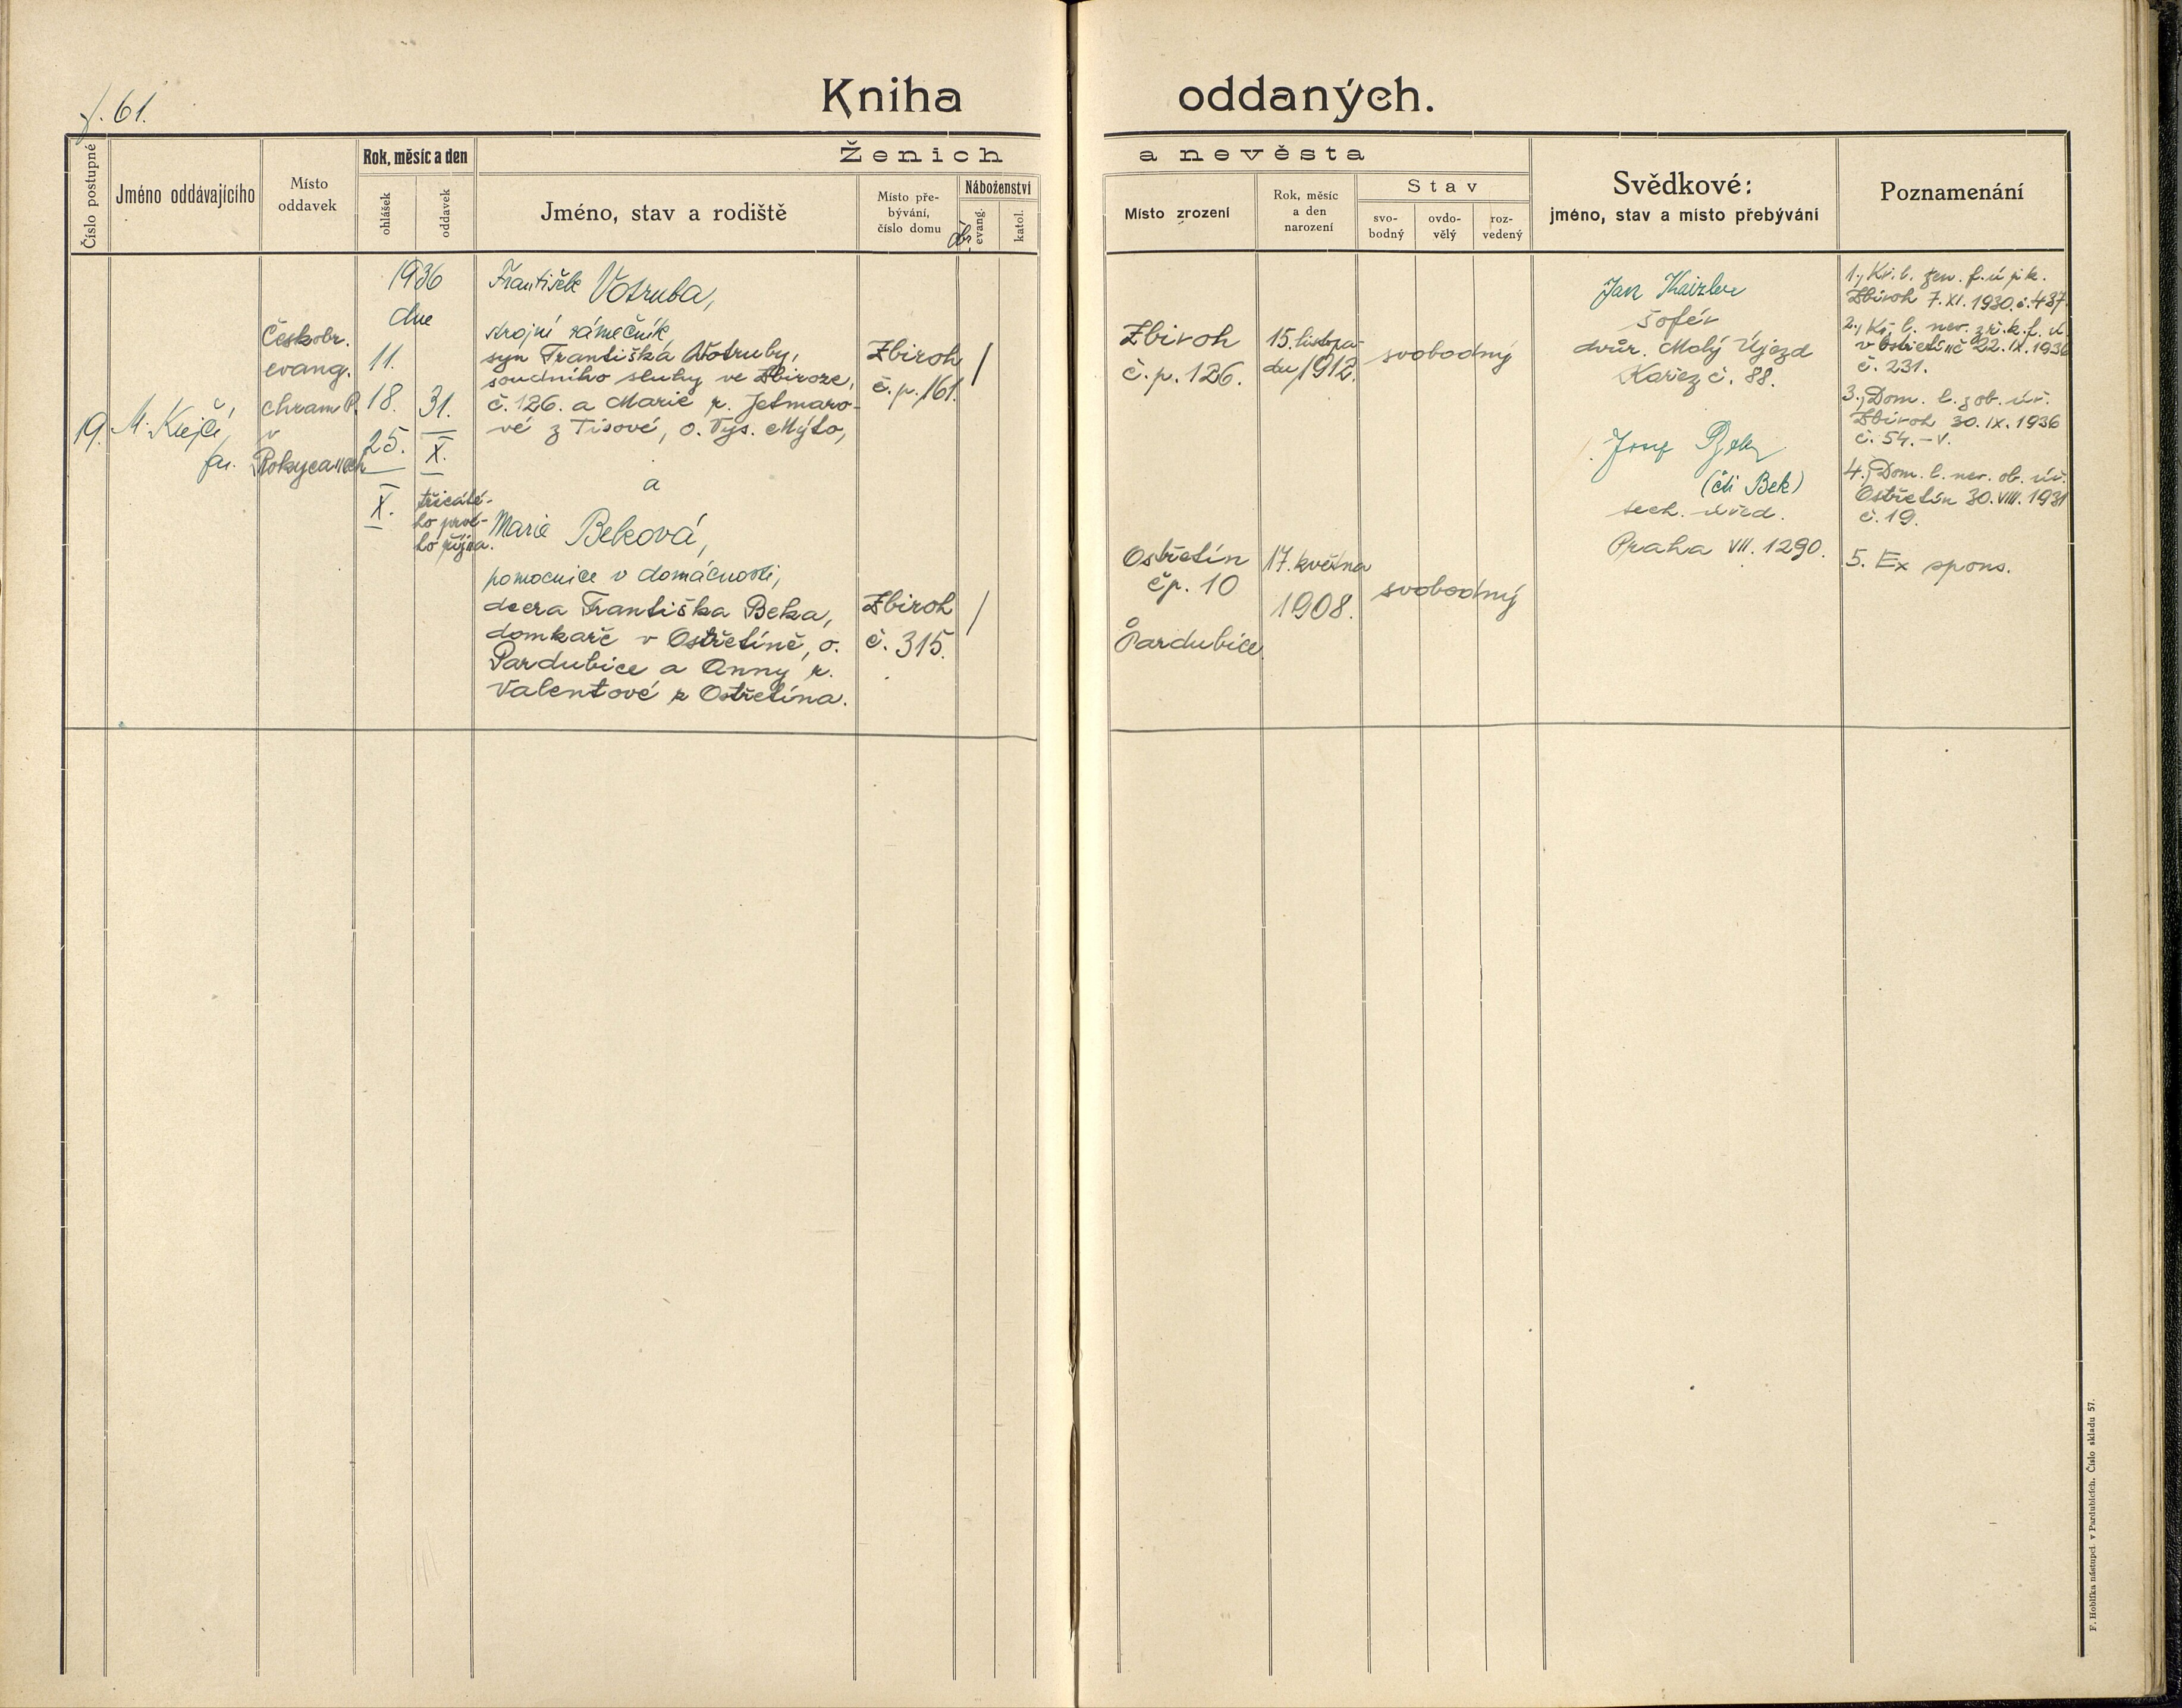 f. 61.
Kniha oddaných.
Číslo postupné
Jméno oddávajícího
Místo
oddavek
Rok, měsíc a den
ohlášek
oddavek
Ženich a nevěsta
Jméno, stav a rodiště
Místo pře-
bývání,
číslo domu
Náboženství
evang.
katol.
Místo zrození
Rok, měsíc
a den
narození
Stav
svo-
bodný
ovdo-
vělý
roz-
vedený
Svědkové:
jméno, stav a místo přebývání
Poznamenání
19.
M. Krejčí,
far.
Českobr.
evang.
chram P.
v
Rokycanech
1936
dne
11.
18.
25.
X.
31.
X.
třicáté-
ho prvé-
ho října.
František Votruba,
strojní zámečník
syn Františka Votruby,
soudního sluhy ve Zbiroze,
č. 126. a Marie r. Jetmaro-
vé z Tisové, o. Vys. Mýto,
a
Marie Beková,
pomocnice v domácnosti,
dcera Františka Beka,
domkaře v Ostřetíně, o.
Pardubice a Anny r.
Valentové z Ostřetína.
Zbiroh
č.p. 161.
Zbiroh
č. 315.
Zbiroh
č. p. 126.
Ostřetín
čp. 10
o
Pardubice.
15. listopa-
du 1912.
17. května
1908.
svobodný
svobodný
Jan Kaizler
šofér
dvůr. Malý Újezd
Kařez č. 88.
Josef
(čti Bek)
tech. úřed.
Praha VII. 1290.
1., Kř. l. žen. f. ú
Zbiroh 7. XI. 1930. č. 487.
2., Kř. l. nev. ř. k. f. ú.
v Ostřetíně 22. IX. 1936
č. 231.
3., Dom. l. ž ob. úř.
Zbiroh 30. IX. 1936
č. 54. - V.
4., Dom. l. nev. ob. úř.
Ostřetín 30. VIII. 1931
č. 19.
5. Ex spons.
F. Hoblíka nástupci v Pardubicích. Číslo skladu 57.